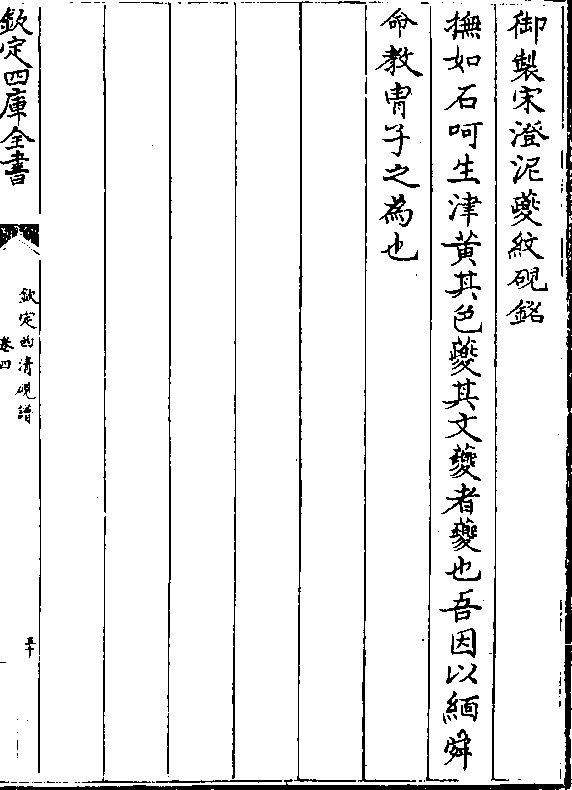 御製宋澄泥夔紋硯銘
撫如石呵生津黄其色夔其文夔者夔也吾因以緬舜
命教胄子之為也
欽定四庫全書
欽定西清硯譜
卷四